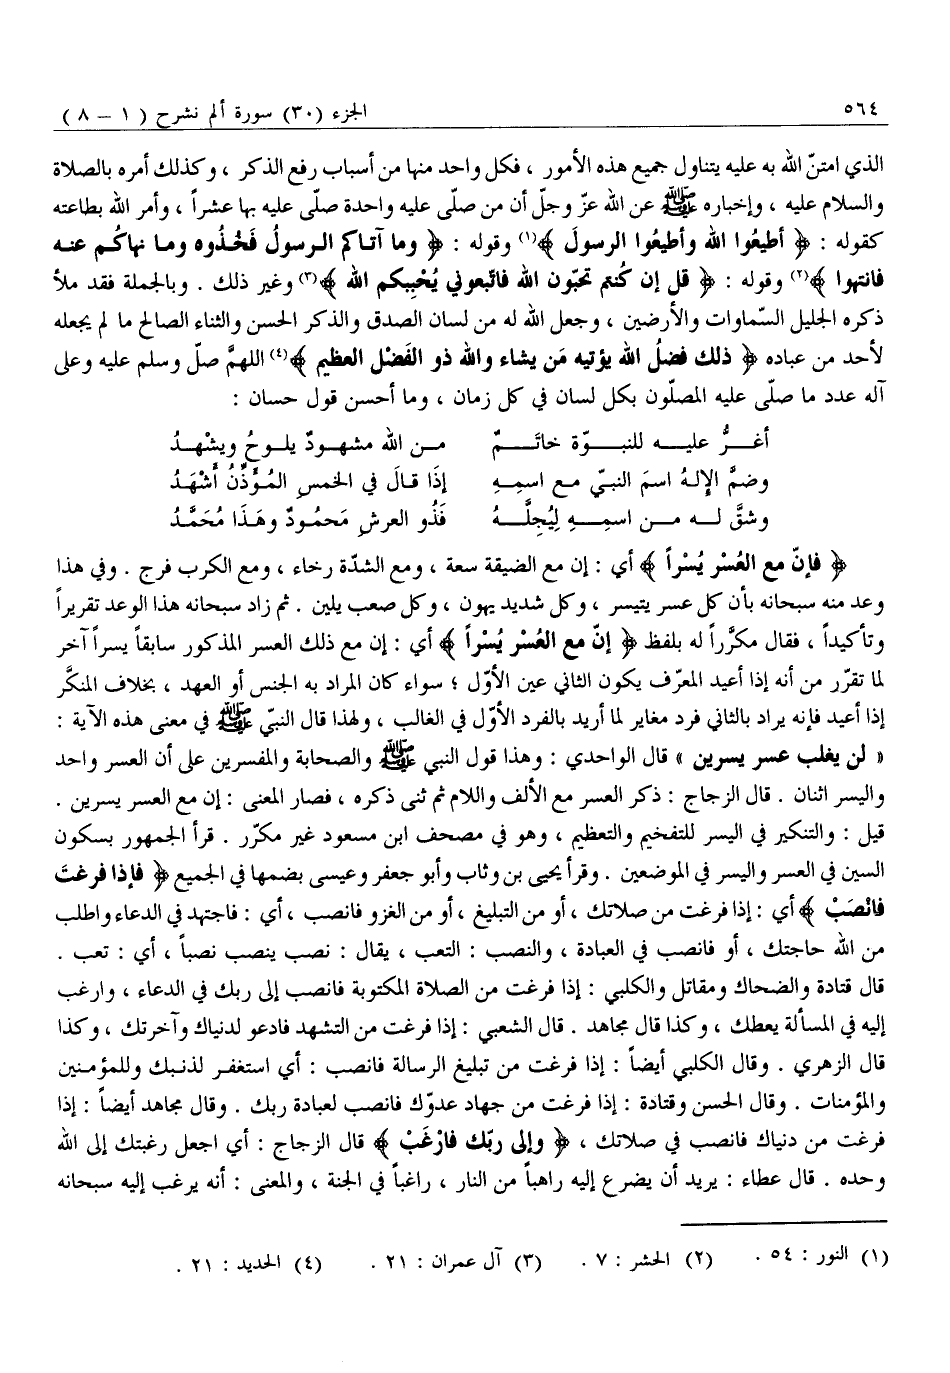 ٥٦٤ الجزء (٣٠) سورة ألم نشرح ( ١ – ٨ )
الذي امتنّ الله به عليه يتناول جميع هذه الأمور ، فكل واحد منها من أسباب رفع الذكر ، وكذلك أمره بالصلاة
والسلام عليه ، وإخباره ﷺ عن الله عزّ وجلّ أن من صلّى عليه واحدة صلّى عليه بها عشراً ، وأمر الله بطاعته
كقوله : ﴿ أطيعُوا الله وأطيعُوا الرسولَ ﴾(١) وقوله : ﴿ وما آتاكم الرسولُ فَخُذُوه وما نهاكُم عنه
فانتهوا ﴾(٢) وقوله : ﴿ قل إن كُنتم تحبّون الله فاتّبعوني يُحْبِبكم الله ﴾(٣) وغير ذلك . وبالجملة فقد ملأ
ذكره الجليل السّماوات والأرضين ، وجعل الله له من لسان الصدق والذكر الحسن والثناء الصالح ما لم يجعله
لأحد من عباده ﴿ ذلك فضلُ الله يؤتيه مَن يشاء والله ذو الفَضْل العظيم ﴾(٤) اللهمّ صلّ وسلم عليه وعلى
آله عدد ما صلّى عليه المصلّون بكل لسان في كل زمان ، وما أحسن قول حسان :
أغـرُّ عليـه للنبـوّة خاتَـمٌ من الله مشهودٌ يلوحُ ويشْهـدُ
وضمَّ الإلـهُ اسمَ النبيّ مع اسمِهِ إذَا قـالَ في الخمسِ المُؤَذِّنُ أَشْهَدُ
وشقَّ لـه مـن اسمِـهِ لِيُجِلَّـهُ فَذُو العرشِ مَحمُودٌ وهَذَا مُحَمَّدُ
﴿ فإنّ مع العُسْر يُسْراً ﴾ أي : إن مع الضيقة سعة ، ومع الشدّة رخاء ، ومع الكرب فرج . وفي هذا
وعد منه سبحانه بأن كل عسر يتيسر ، وكل شديد يهون ، وكل صعب يلين . ثم زاد سبحانه هذا الوعد تقريراً
وتأكيداً ، فقال مكرَّراً له بلفظ ﴿ إنّ مع العُسْر يُسْراً ﴾ أي : إن مع ذلك العسر المذكور سابقاً يسراً آخر
لما تقرّر من أنه إذا أعيد المعرّف يكون الثاني عين الأوّل ؛ سواء كان المراد به الجنس أو العهد ، بخلاف المنكَّر
إذا أعيد فإنه يراد بالثاني فرد مغاير لما أريد بالفرد الأوّل في الغالب ، ولهذا قال النبيّ ﷺ في معنى هذه الآية :
« لن يغلب عسر يسرين » قال الواحدي : وهذا قول النبي ﷺ والصحابة والمفسرين على أن العسر واحد
واليسر اثنان . قال الزجاج : ذكر العسر مع الألف واللام ثم ثنى ذكره ، فصار المعنى : إن مع العسر يسرين .
قيل : والتنكير في اليسر للتفخيم والتعظيم ، وهو في مصحف ابن مسعود غير مكرّر . قرأ الجمهور بسكون
السين في العسر واليسر في الموضعين . وقرأ يحيى بن وثاب وأبو جعفر وعيسى بضمها في الجميع ﴿ فإذا فرغتَ
فانْصَبْ ﴾ أي : إذا فرغت من صلاتك ، أو من التبليغ ، أو من الغزو فانصب ، أي : فاجتهد في الدعاء واطلب
من الله حاجتك ، أو فانصب في العبادة ، والنصب : التعب ، يقال : نصب ينصب نصباً ، أي : تعب .
قال قتادة والضحاك ومقاتل والكلبي : إذا فرغت من الصلاة المكتوبة فانصب إلى ربك في الدعاء ، وارغب
إليه في المسألة يعطك ، وكذا قال مجاهد . قال الشعبي : إذا فرغت من التشهد فادعو لدنياك وآخرتك ، وكذا
قال الزهري . وقال الكلبي أيضاً : إذا فرغت من تبليغ الرسالة فانصب : أي استغفر لذنبك وللمؤمنين
والمؤمنات . وقال الحسن وقتادة : إذا فرغت من جهاد عدوّك فانصب لعبادة ربك . وقال مجاهد أيضاً : إذا
فرغت من دنياك فانصب في صلاتك ، ﴿ وإلى ربّك فارْغَبْ ﴾ قال الزجاج : أي اجعل رغبتك إلى الله
وحده . قال عطاء : يريد أن يضرع إليه راهباً من النار ، راغباً في الجنة ، والمعنى : أنه يرغب إليه سبحانه
(١) النور : ٥٤ . (٢) الحشر : ٧ . (٣) آل عمران : ٢١ . (٤) الحديد : ٢١ .